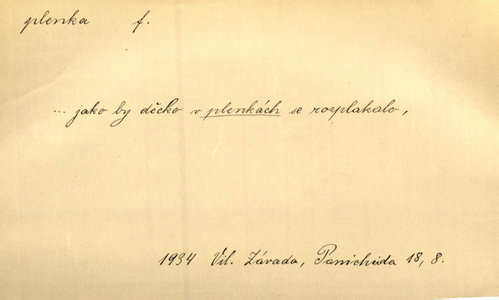 plenka f.
... jako by děcko v plenkách se rozplakalo,
1934 Vil. Závada, Panichida 18, 8.